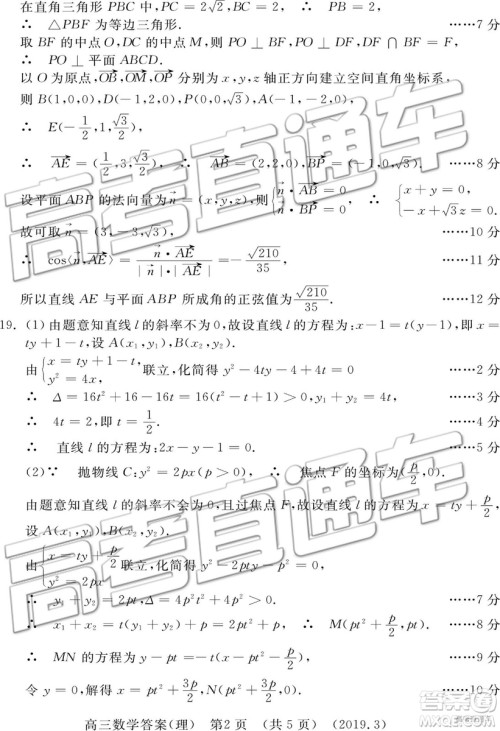 在直角三角形 PBC 中,PC=2√2,BC=2, ∴ PB=2.
∴ △PBF 为等边三角形. ……7 分
取 BF 的中点 O,DC 的中点 M,则 PO⊥BF,PO⊥DF,DF∩BF=F,
∴ PO⊥平面 ABCD.
以 O 为原点,OB,OM,OP 分别为 x,y,z 轴正方向建立空间直角坐标系,
则 B(1,0,0),D(-1,2,0),P(0,0,√3),A(-1,-2,0),
∴ E(-1/2,1,√3/2),
∴ AE=(1/2,3,√3/2), ∴ AB=(2,2,0),BP=(-1,0,√3). ……8 分
设平面 ABP 的法向量为 n=(x,y,z),则{n·AB=0 n·BP=0 ∴ {x+y=0, -x+√3z=0.
故可取 n=(3,-3,√3) ……10 分
∴ cos⟨n,AE⟩= n·AE/|n|·|AE| =-√210/35, ……11 分
所以直线 AE 与平面 ABP 所成角的正弦值为√210/35. ……12 分
19. (1) 由题意知直线 l 的斜率不为 0,故设直线 l 的方程为:x-1=t(y-1),即 x=
ty+1-t,设 A(x₁,y₁),B(x₂,y₂).
由{x=ty+1-t, y²=4x, 联立,化简得 y²-4ty-4+4t=0 ……2 分
∴ Δ=16t²+16-16t=16(t²-t+1)>0,y₁+y₂=4t. ……3 分
∴ 4t=2,即 t=1/2. ……4 分
∴ 直线 l 的方程为:2x-y-1=0. ……5 分
(2)∵ 抛物线 C:y²=2px(p>0), ∴ 焦点 F 的坐标为(p/2,0).
由题意知直线 l 的斜率不会为 0,且过焦点 F,故设直线 l 的方程为 x=ty+p/2,
设 A(x₁,y₁),B(x₂,y₂).
由{x=ty+p/2 y²=2px 联立,化简得 y²-2pty-p²=0
∴ y₁+y₂=2pt,Δ=4p²t²+4p²>0. ……7 分
∴ x₁+x₂=t(y₁+y₂)+p=2pt²+p, ∴ M(pt²+p/2,pt). ……8 分
∴ MN 的方程为 y-pt=-t(x-pt²-p/2), ……9 分
令 y=0,解得 x=pt²+3p/2, ∴ N(pt²+3p/2,0), ……10 分
高三数学答案(理) 第2页 (共5页) (2019.3)
高考直通车
高考直通车
高考直通车